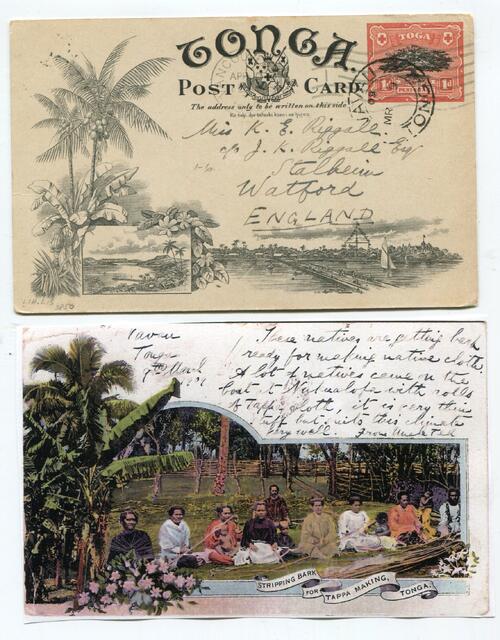 TONGA.
POST CARD
The address only to be written on this side
TOGA
1d 1d
PENI
Miss K. E. Riggall
c/o J. K. Riggall Esq
Stalheim
Watford
ENGLAND
Vavau
Tonga
These natives are getting bark
ready for making native cloth.
A lot of natives came on the
boat at Nukualofa with rolls
of tappa cloth, it is very thin
stuff but suits this climate
very well.
STRIPPING BARK
FOR
TAPPA MAKING,
TONGA.